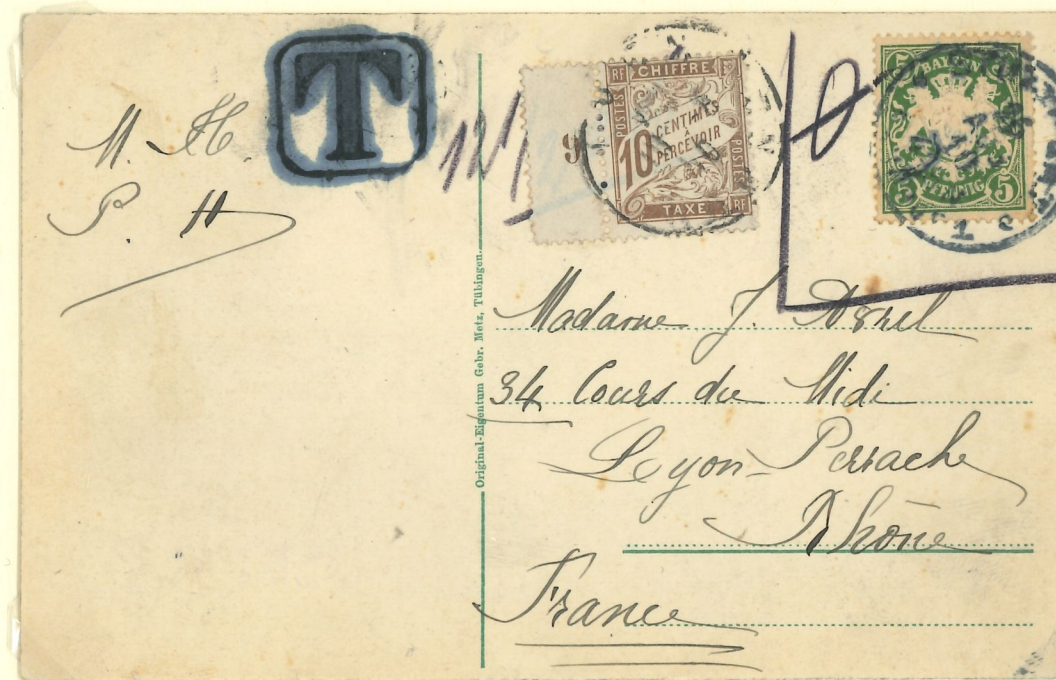 T
M. H.
P. H
12 1/2
9
RF CHIFFRE
POSTES
10 CENTIMES
À
PERCEVOIR
POSTES
TAXE RF
BAYERN
5 PFENNIG 5
Original-Eigentum Gebr. Metz, Tübingen.
Madame J.
34 Cours du Midi
Lyon-Perrache
Rhône
France